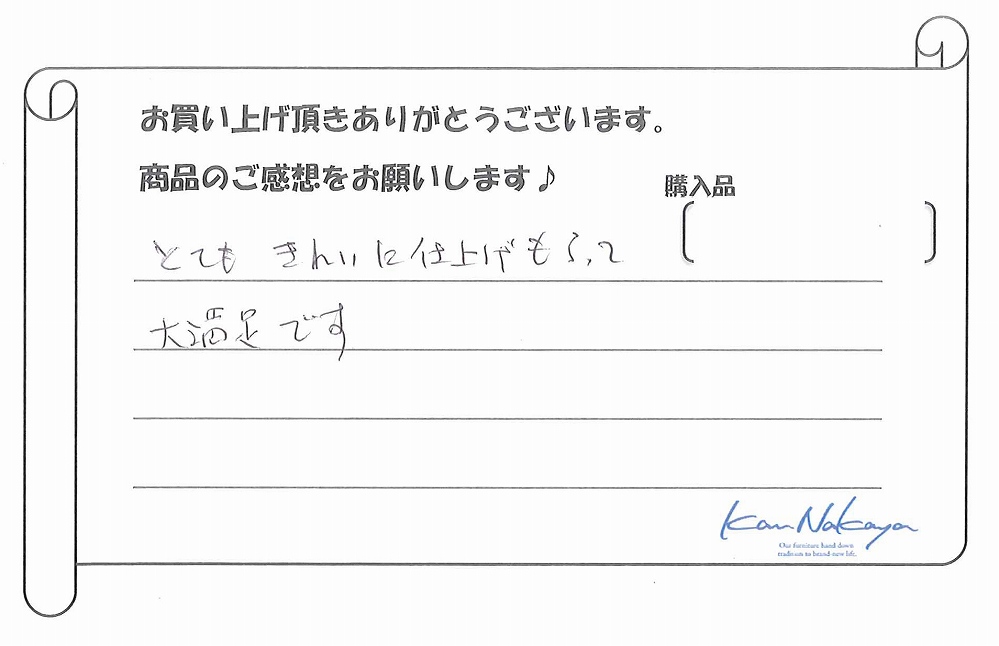 お買い上げ頂きありがとうございます。
商品のご感想をお願いします♪
購入品
とても きれいに仕上げもらって
大満足です
Kan Nakaya
Our furniture hand down
tradition to brand-new life.